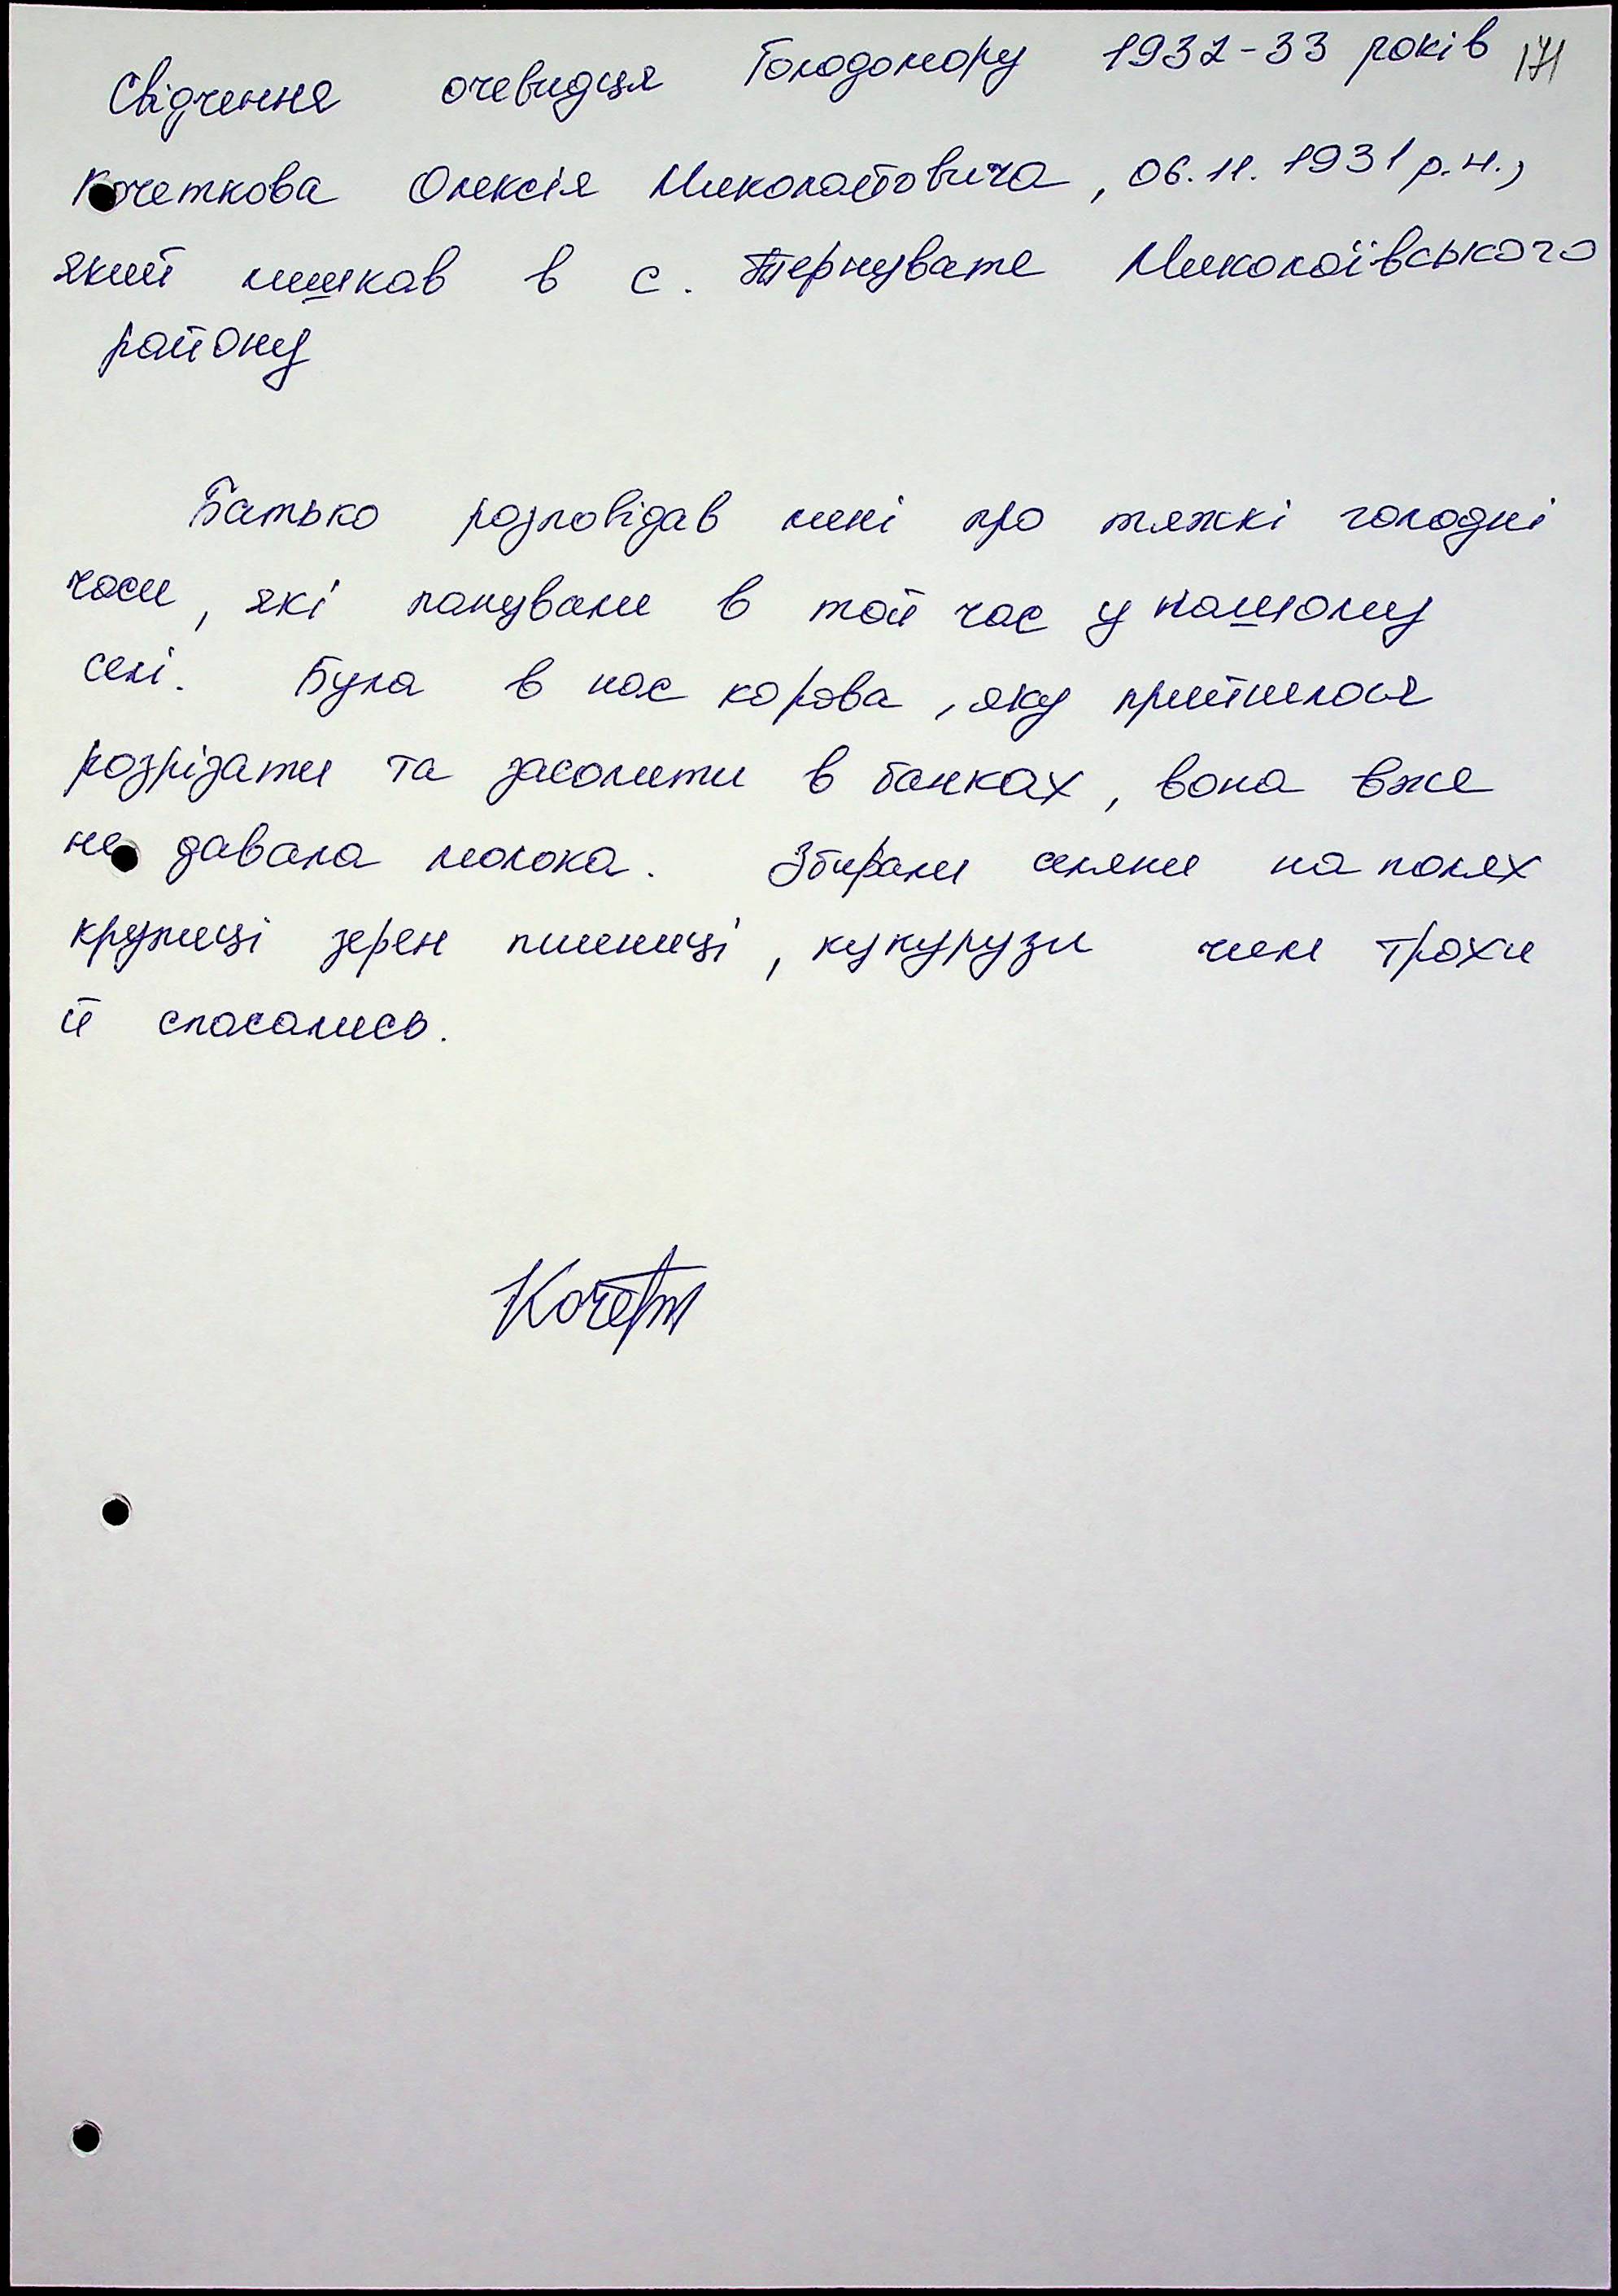 Свідчення очевидця Голодомору 1932-33 років 171
Кочеткова Олексія Миколайовича, 06.11.1931 р.н.,
який мешкав в с. Тернувате Миколаївського
району
Батько розповідав мені про тяжкі голодні
часи, які панували в той час у нашому
селі. Була в нас корова, яку прийшлося
розрізати та засолити в банках, вона вже
не давала молока. Збирали селяни на полях
крупиці зерен пшениці, кукурузи чим трохи
й спасались.